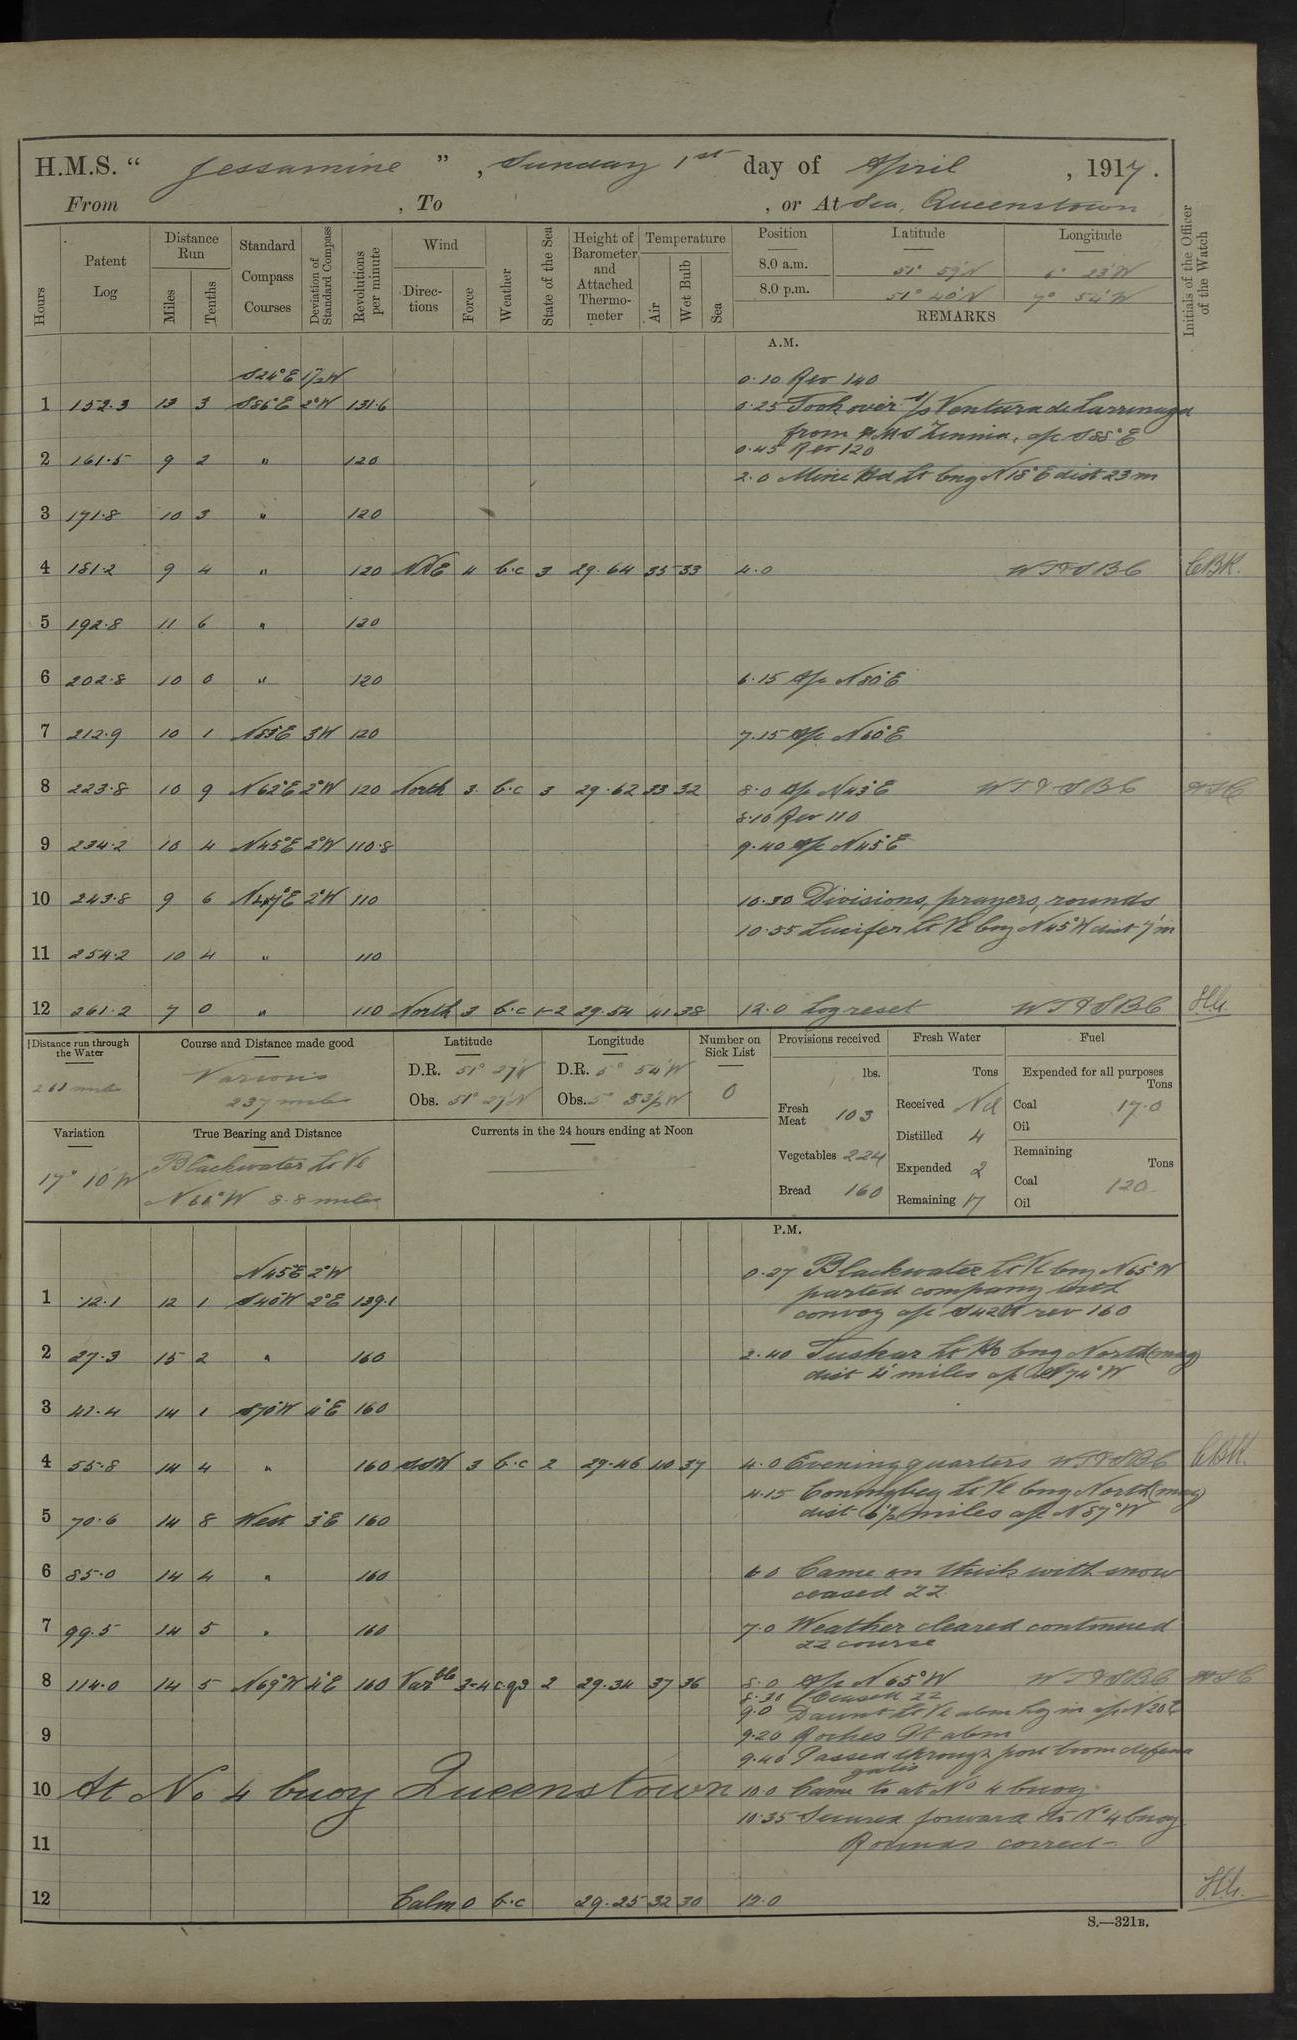 H.M.S. “ Jessamine ”, Sunday 1st day of April, 1917.
From , To , or At Sea, Queenstown
Hours
Patent Log
Distance Run
Miles
Tenths
Standard Compass Courses
Deviation of Standard Compass
Revolutions per minute
Wind
Directions
Force
Weather
State of the Sea
Height of Barometer and Attached Thermometer
Temperature
Air
Wet Bulb
Sea
Position Latitude Longitude
8.0 a.m. 51° 59' N 6° 23' W
8.0 p.m. 51° 40' N 7° 54' W
REMARKS
Initials of the Officer of the Watch
A.M.
S24°E 1½W 0.10 Rev 140
1 152.3 13 3 S86°E 2°W 131.6 0.25 Took over s/s Ventura de Larrinaga
from HMS Zinnia, a/c S88°E
0.45 Rev 120
2 161.5 9 2 " 120
2.0 Mine Hd Lt bng N18°E dist 23 m
3 171.8 10 3 " 120
4 181.2 9 4 " 120 NNE 4 b.c 3 29.64 35 33 4.0 WT & SBC CBK.
5 192.8 11 6 " 120
6 202.8 10 0 " 120 6.15 a/c N80°E
7 212.9 10 1 N83°E 3W 120 7.15 a/c N60°E
8 223.8 10 9 N62°E 2°W 120 North 3 b.c 3 29.62 33 32 8.0 a/c N43°E WT & SBC
8.10 Rev 110
9 234.2 10 4 N45°E 2°W 110.8 9.40 a/c N45°E
10 243.8 9 6 N47°E 2°W 110 10.30 Divisions, prayers, rounds
10.55 Lucifer Lt Vl bng N45°W dist 7' m
11 254.2 10 4 " 110
12 261.2 7 0 " 110 North 3 b.c 1-2 29.54 41 38 12.0 Log reset WT & SBC
Distance run through the Water
261 miles
Course and Distance made good
Various
237 miles
Latitude
D.R. 51° 27' N
Obs. 51° 27' N
Longitude
D.R. 5° 54' W
Obs. 5° 53½ W
Number on Sick List
0
Provisions received
lbs.
Fresh Meat 103
Vegetables 224
Bread 160
Fresh Water
Tons
Received Nil
Distilled 4
Expended 2
Remaining 17
Fuel
Expended for all purposes
Tons
Coal 17.0
Oil
Remaining
Tons
Coal 120
Oil
Variation
17° 10' W
True Bearing and Distance
Blackwater Lt Vl
N66°W 8.8 miles
Currents in the 24 hours ending at Noon
P.M.
N45°E 2°W 0.27 Blackwater Lt Vl bng N65°W
1 12.1 12 1 S40°W 2°E 139.1 parted company with
convoy a/c S42W rev 160
2 27.3 15 2 " 160 2.40 Tuskar Lt Ho bng North (mag)
dist 4' miles a/c N74°W
3 41.4 14 1 S70°W 4°E 160
4 55.8 14 4 " 160 SSW 3 b.c 2 29.46 40 37 4.0 Evening quarters WT & SBC CBK.
4.15 Coningbeg Lt Vl bng North (mag)
5 70.6 14 8 West 3°E 160 dist 6½ miles a/c N87°W
6 85.0 14 4 " 160 6.0 Came on thick with snow
ceased ZZ
7 99.5 14 5 " 160 7.0 Weather cleared continued
ZZ course
8 114.0 14 5 N69°W 4°E 160 Varble 3-4 c.q.s 2 29.34 37 36 8.0 a/c N65°W WT & SBC
8.30 Ceased ZZ
9.0 Daunt Lt Vl abm hg in a/c N20E
9 9.20 Roches Pt abm
9.40 Passed through port boom defence
gates
10 At No 4 buoy Queenstown 10.0 Came to at No 4 buoy.
10.35 Secured forward to No 4 buoy
11 Rounds correct
12 Calm 0 b.c 29.25 32 30 12.0
S.—321B.